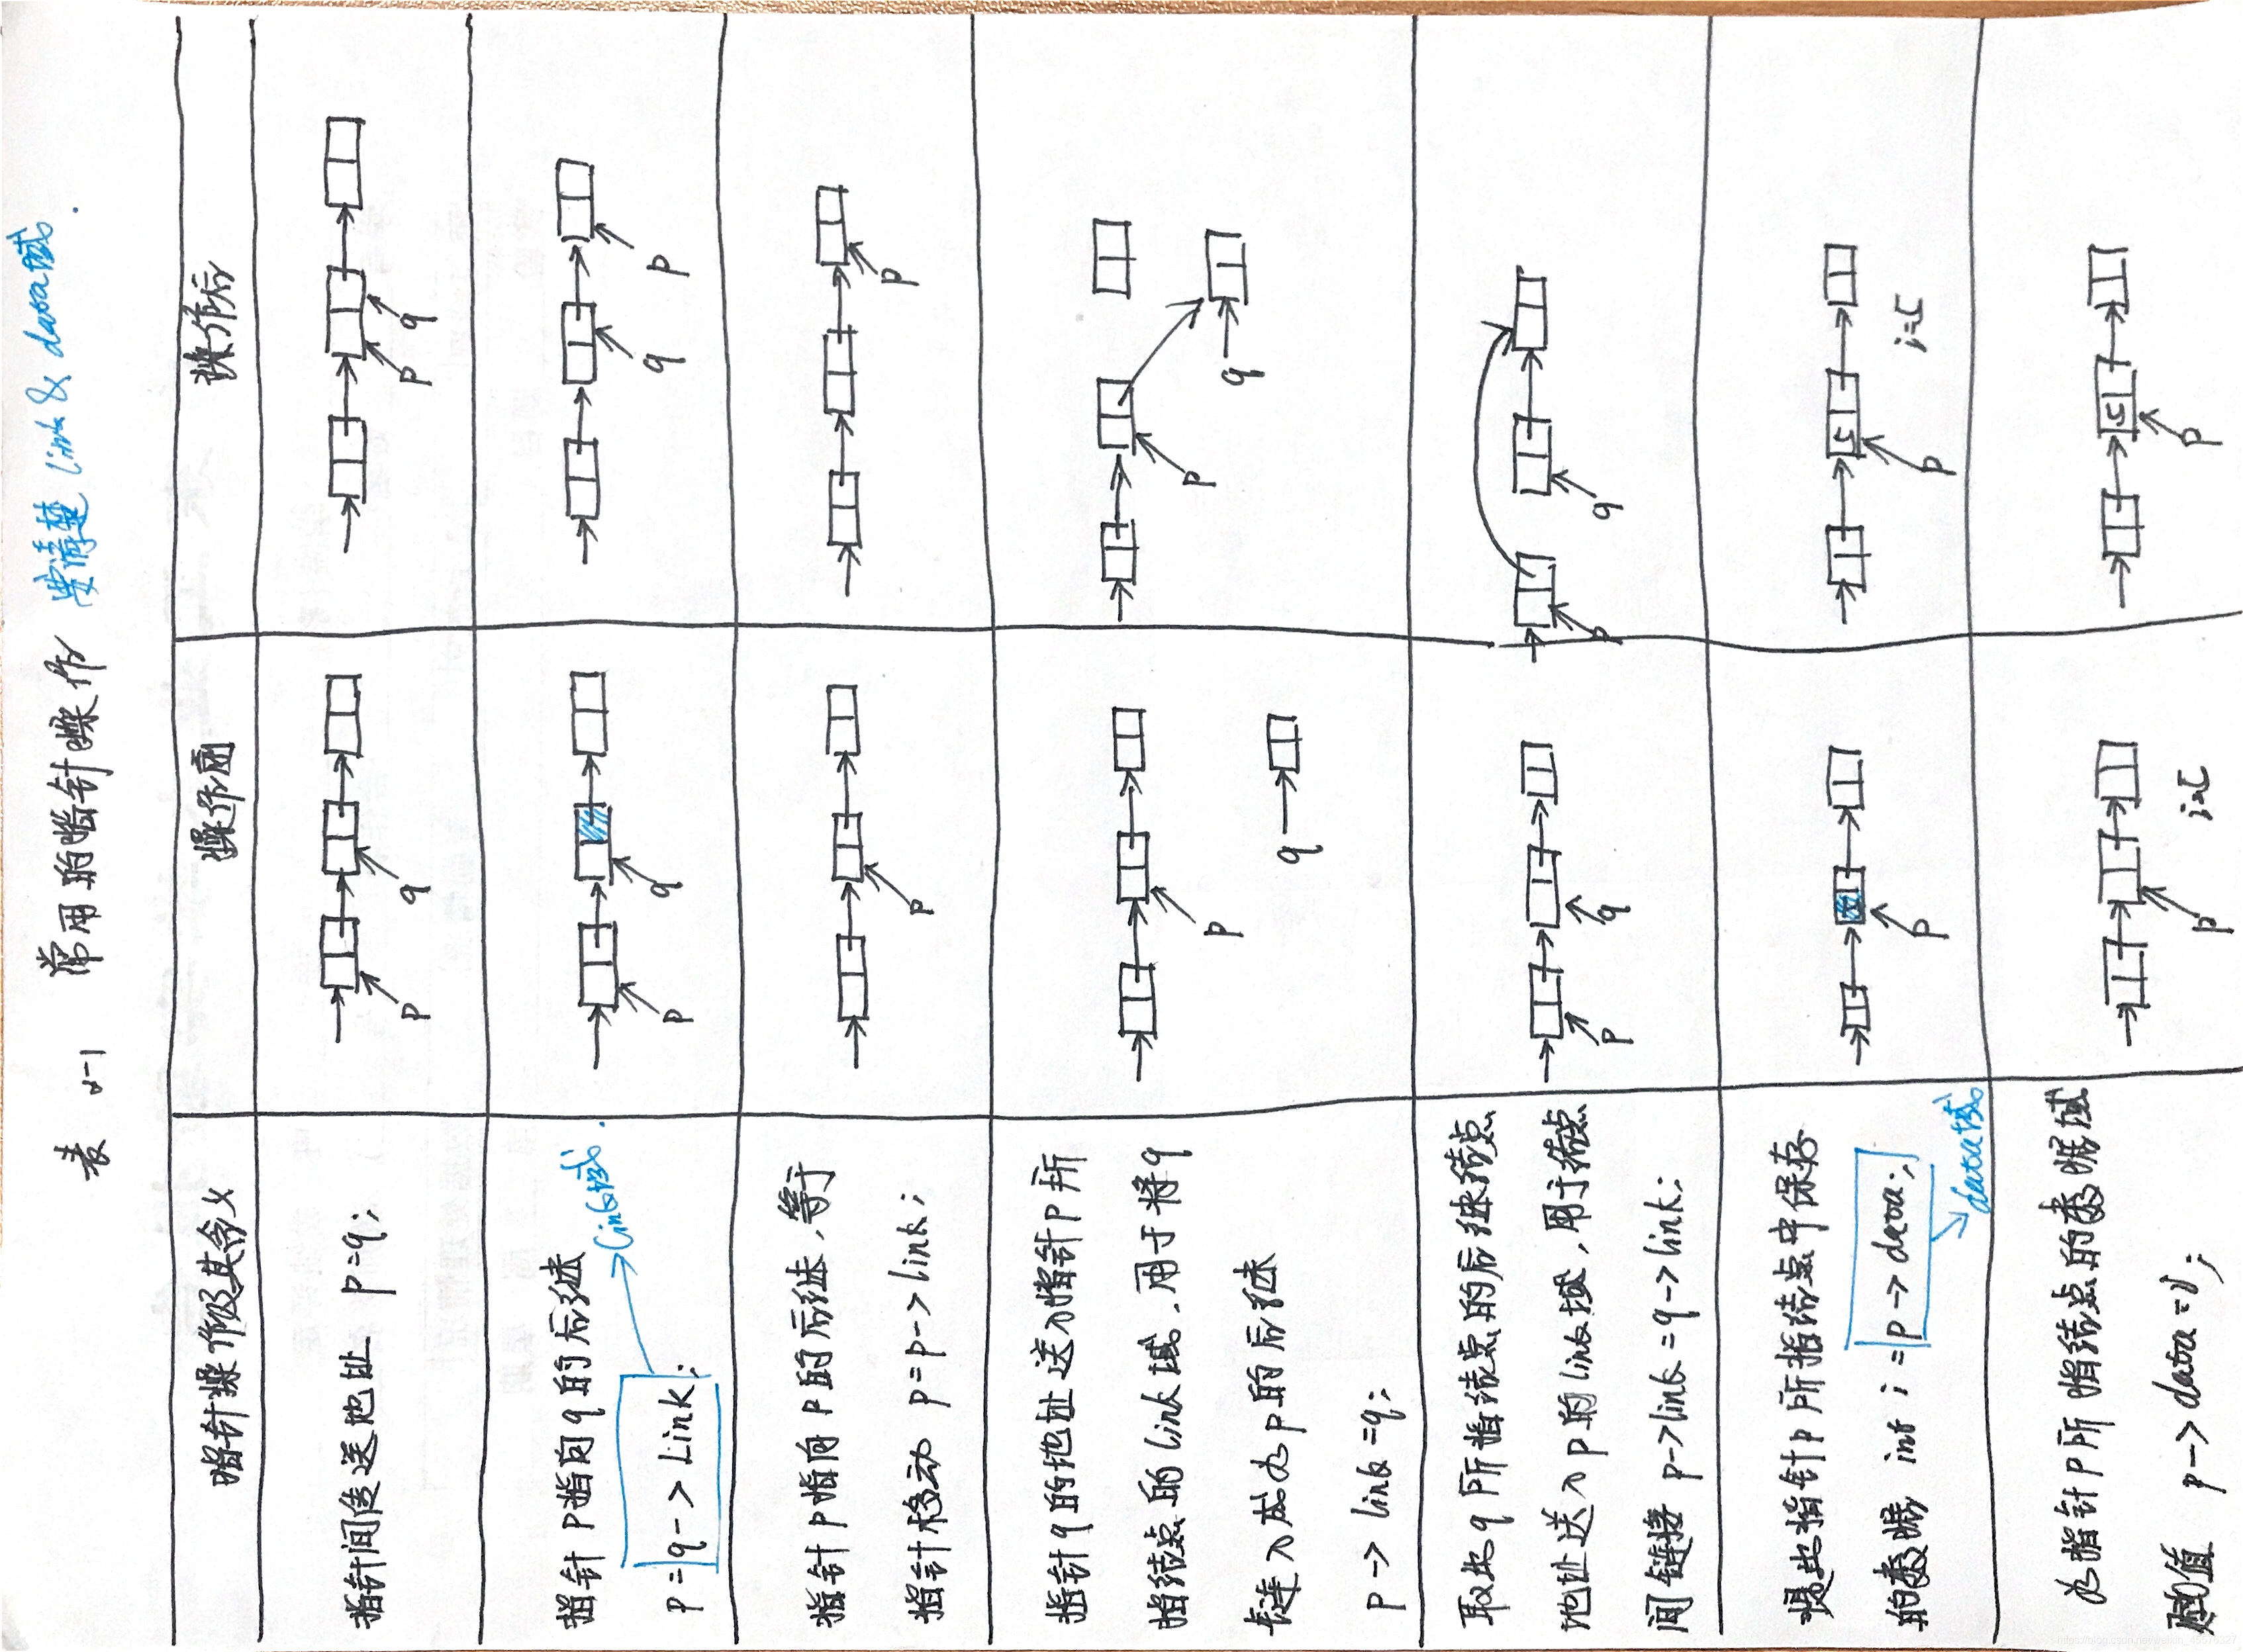 表 2-1 常用的指针操作 要清楚 link & data域.
指针操作及其含义 操作前 操作后
指针间传送地址 p=q;
p q
p q
指针 p指向q的后继
p=q->Link;
link域.
p q
q p
指针p指向p的后继,等于
指针移动 p=p->link;
p
p
指针q的地址送入指针p所
指结点的link域,用于将q
链入成为p的后继
p->link=q;
p q
p q
取出q所指结点的后继结点
地址送入p的link域,用于结点
间链接 p->link=q->link;
p q
p q
提出指针p所指结点中保存
的数据 int i=p->data;
data域
p
5
p i=5
为指针p所指结点的数据域
赋值 p->data=i;
p i=5
5
p